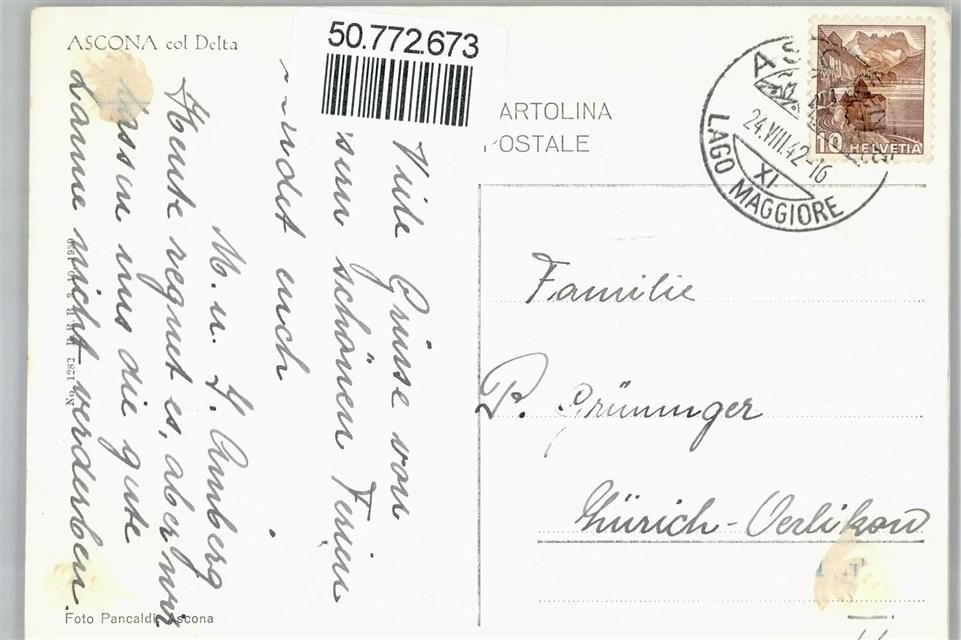 ASCONA col Delta
50.772.673
CARTOLINA
POSTALE
ASCONA
24.VIII.42-16
XI
LAGO MAGGIORE
10 HELVETIA
Viele Grüsse von
schönen Ferien
euch
M. u. J. Amberg
Heute regnet es, aber wir
lassen uns die gute
Laune nicht verderben.
Familie
P. Grüninger
Zürich-Oerlikon
Foto Pancaldi Ascona